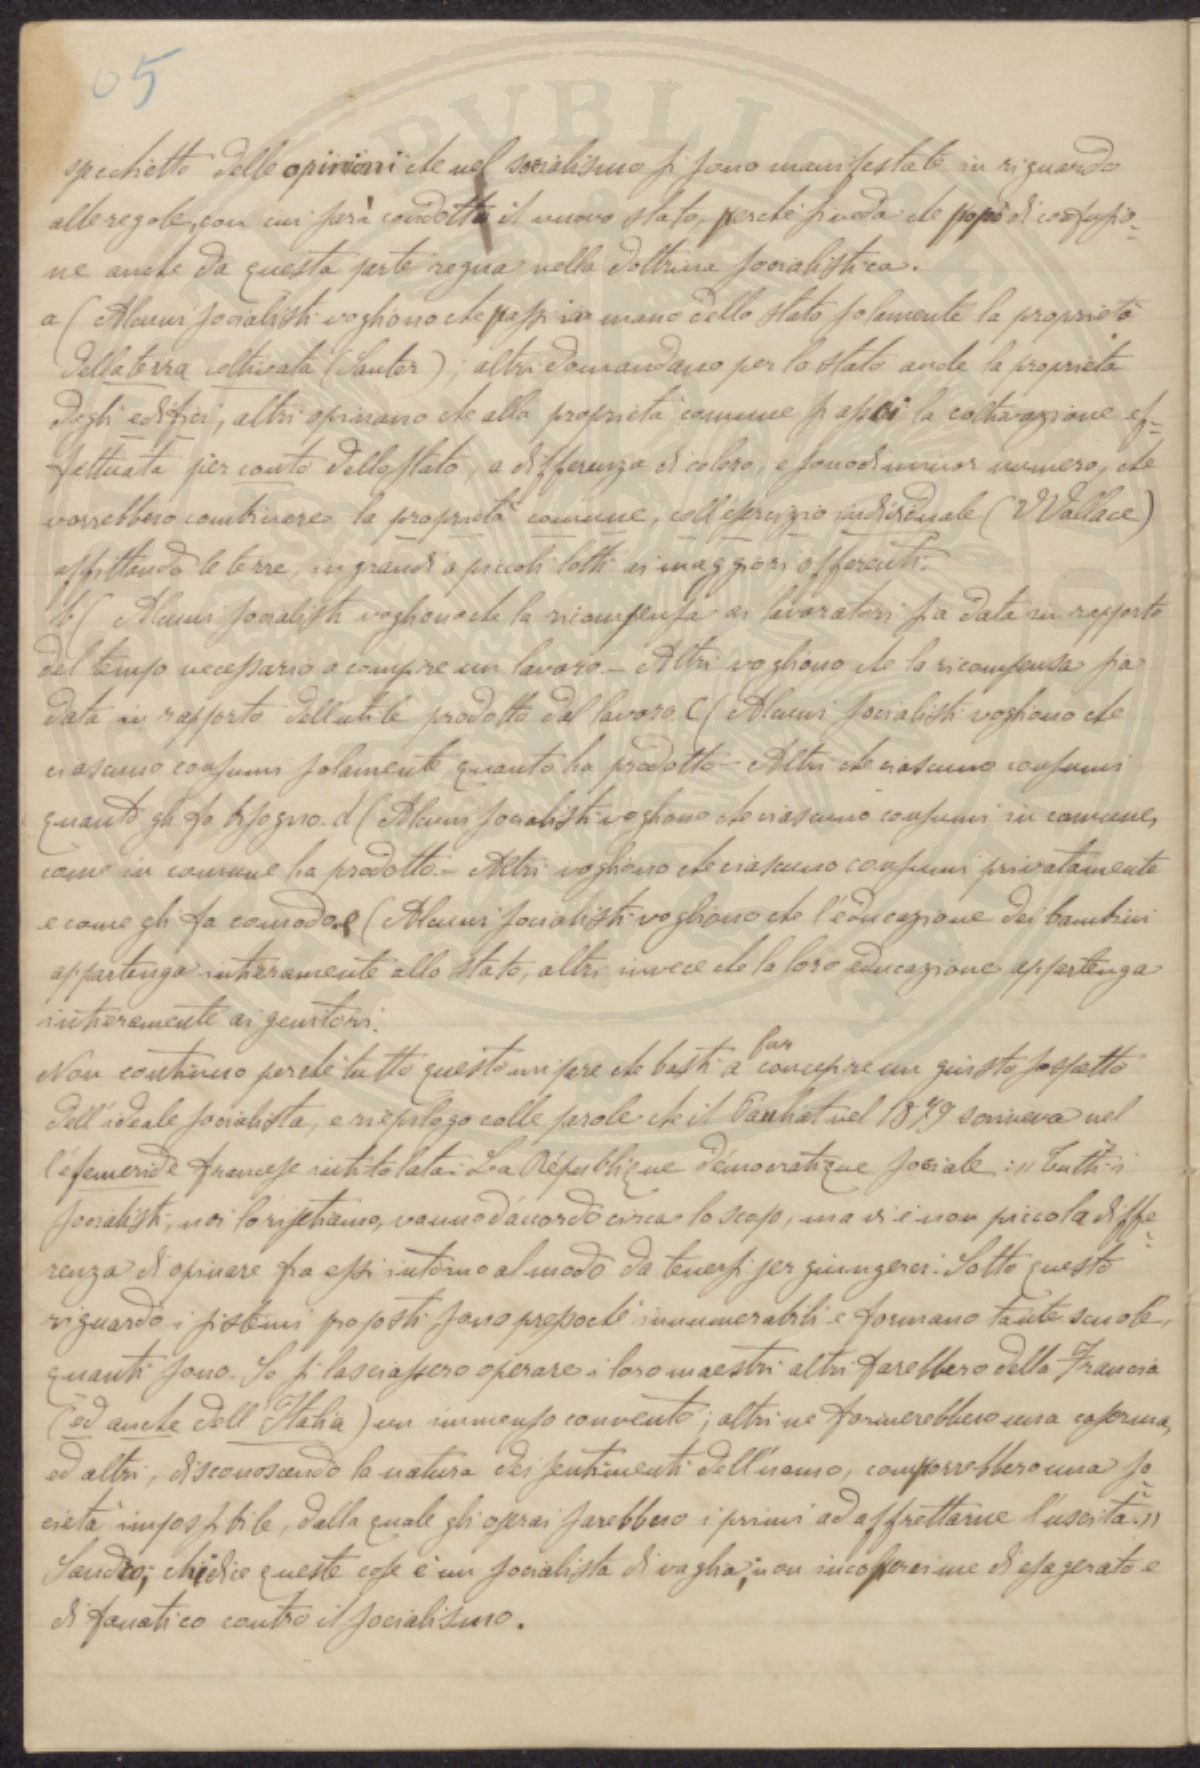 05
specchietto delle opinioni che nel socialismo si sono manifestate in riguardo
alle regole, con cui sarà condotto il nuovo stato, perchè si veda che popò di confusio=
ne anche da questa parte regna nella dottrina socialistica.
a ( Alcuni socialisti vogliono che passi in mano dello stato solamente la proprietà
della terra coltivata (Sauter); altri domandano per lo stato anche la proprietà
degli edifici, altri opinano che alla proprietà comune si associ la coltivazione ef=
fettuata per conto dello stato, a differenza di coloro, e sono di minor numero, che
vorrebbero combinare la proprietà comune, coll'esercizio individuale (Wallace)
affittando le terre, in grandi o piccoli lotti ai maggiori offerenti.
b ( Alcuni socialisti vogliono che la ricompensa ai lavoratori sia data in rapporto
del tempo necessario a compire un lavoro - Altri vogliono che la ricompensa sia
data in rapporto dell'utile prodotto dal lavoro. C ( Alcuni socialisti vogliono che
ciascuno consumi solamente quanto ha prodotto - Altri che ciascuno consumi
quanto gli fa bisogno. d ( Alcuni socialisti vogliono che ciascuno consumi in comune,
come in comune ha prodotto. - Altri vogliono che ciascuno consumi privatamente
e come gli fa comodo. e ( Alcuni socialisti vogliono che l'educazione dei bambini
appartenga intieramente allo stato, altri invece che la loro educazione appartenga
intieramente ai genitori.
Non continuo perchè tutto questo mi pare che basti a far concepire un giusto sospetto
dell'ideale socialista, e riepilogo colle parole che il nel 1879 scriveva nel
l'efemeride francese intitolata: La République démocratique sociale: " Tutti i
socialisti, noi lo ripetiamo, vanno d'accordo circa lo scopo, ma vi è non piccola diffe=
renza di opinare fra essi intorno al modo da tenersi per giungerci. Sotto questo
riguardo i sistemi proposti sono pressochè innumerabili e formano tante scuole,
quanti sono. Se si lasciassero operare i loro maestri altri farebbero della Francia
(ed anche dell'Italia) un immenso convento; altri ne formerebbero una caserma,
ed altri, disconoscendo la natura dei sentimenti dell'uomo, comporrebbero una so=
cietà impossibile, dalla quale gli operai sarebbero i primi ad affrettarne l'uscita. "
Sandro; chi dice queste cose è un socialista di vaglia; non incolperai me di esagerato e
di fanatico contro il socialismo.